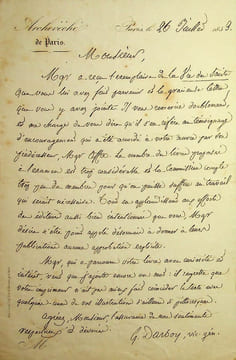 Archevêché
de Paris.
Paris, le 26 Juillet 1853.
Monsieur,
Mgr a reçu l'exemplaire de la Vie de
que vous lui avez fait parvenir et la gracieuse lettre
que vous y avez jointe. Il vous remercie doublement,
et me charge de vous dire qu'il s'en réfère au témoignage
d'encouragement qui a été accordé à votre œuvre par son
prédécesseur, Mgr Affre. Le nombre de livres proposés
à l'examen est trop considérable et la Commission compte
trop peu de membres pour qu'on puisse suffire au travail
qui serait nécessaire. Tout en applaudissant aux efforts
des éditeurs aussi bien intentionnés que vous, Mgr
désire n'être point appelé désormais à donner à leurs
publications aucune approbation explicite.
Mgr, qui a parcouru votre livre avec curiosité et
intérêt, veut que j'ajoute encore un mot: il regrette que
votre imprimeur n'ait pas mieux fait coïncider le texte avec
quelques-unes de vos illustrations si pittoresques.
Agréez, Monsieur, l'assurance de mes sentiments
respectueux et dévoués.
G. Darboy, vic. gén.